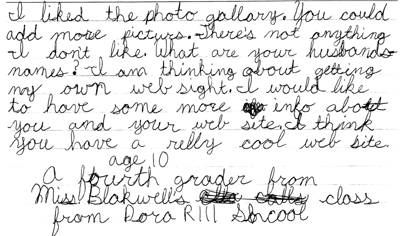 I liked the photo gallary. You could
add more picturs. There's not anything
I dont like. What are your husbands
names? I am thinking about getting
my own web sight. I would like
to have some more info about
you and your web site. I think
you have a relly cool web site.
age 10
A fourth grader from
Miss Blakwell's class
from Dora RIII School